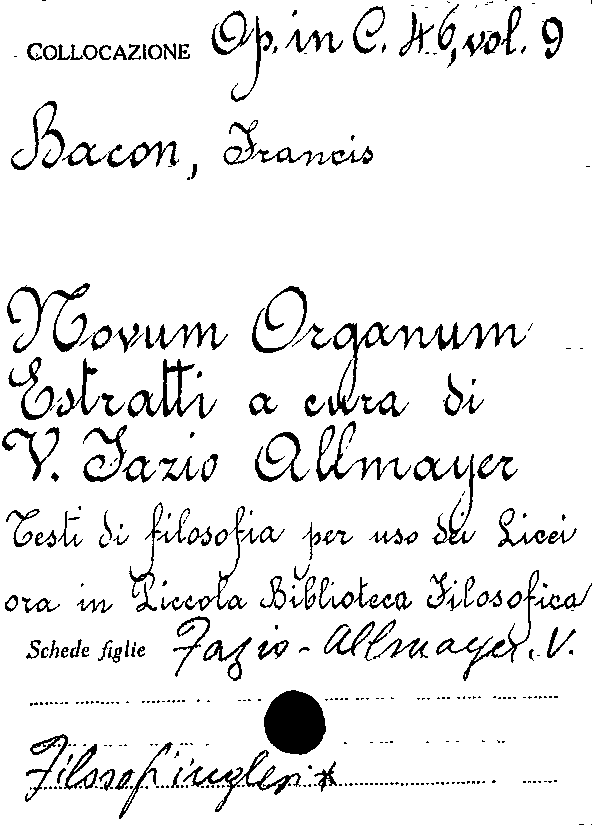 COLLOCAZIONE Op. in C. 46, vol. 9
Bacon, Francis
Novum Organum
Estratti a cura di
V. Fazio Allmayer
Testi di filosofia per uso dei Licei
ora in Piccola Biblioteca Filosofica
Schede figlie Fazio-Allmayer. V.
Filosofi inglesi *